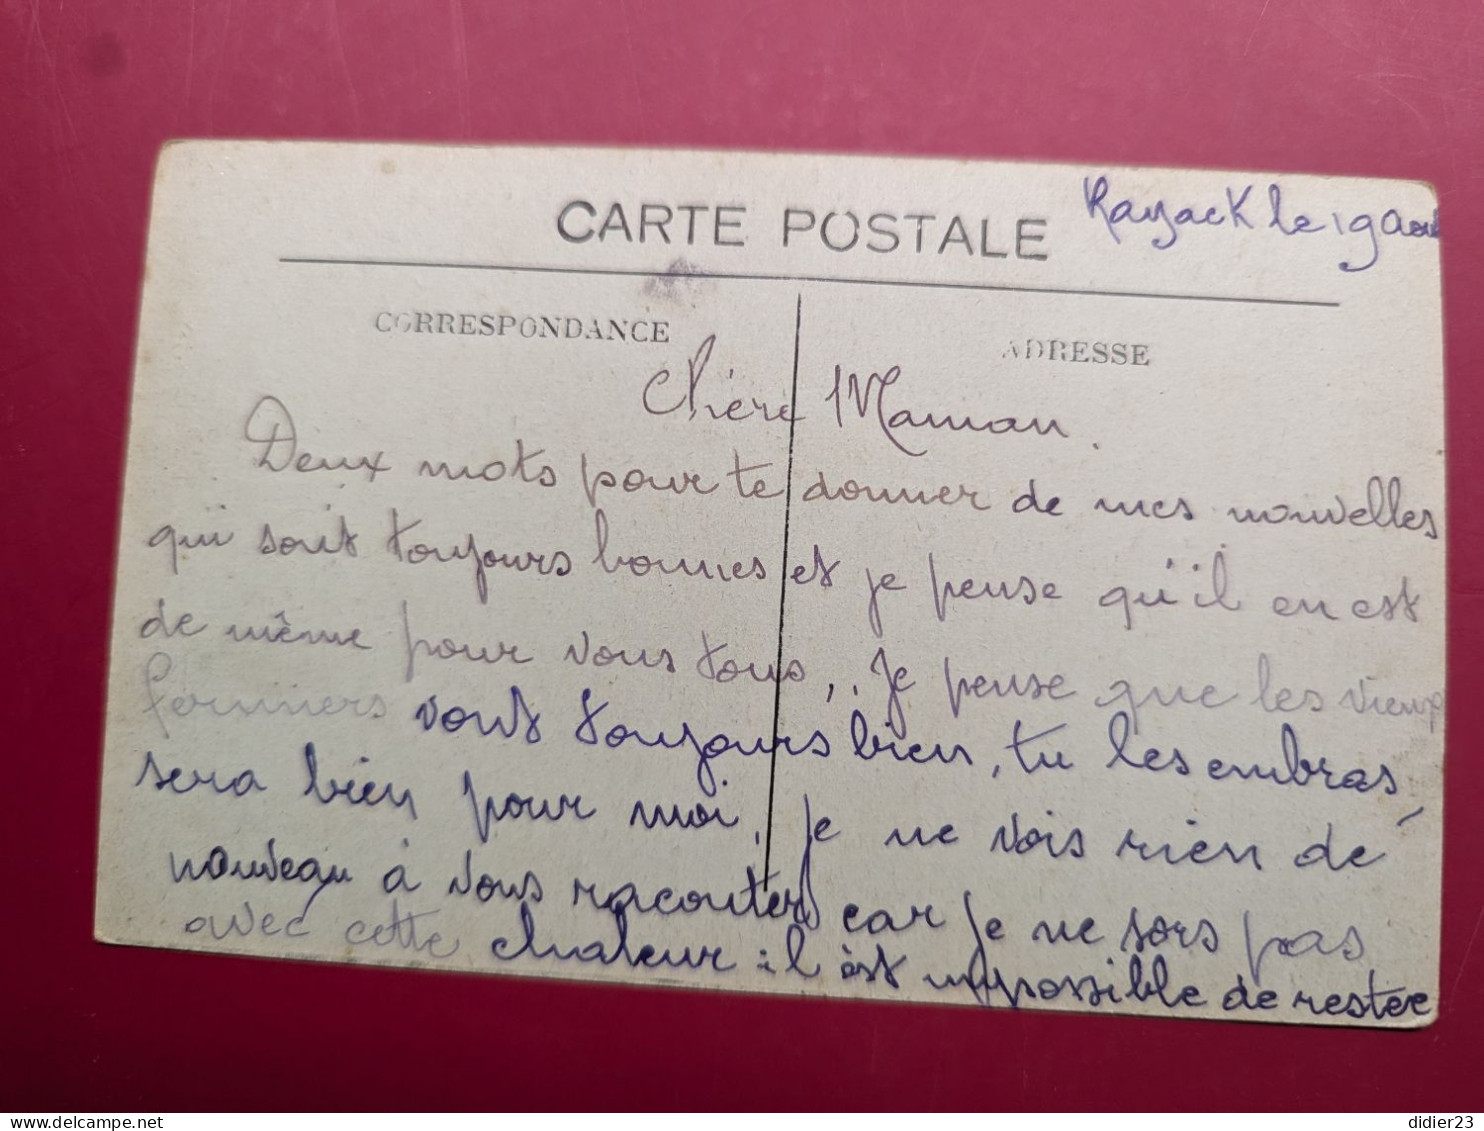 CARTE POSTALE
Rayack le 19 Aout
CORRESPONDANCE
ADRESSE
Chère Maman.
Deux mots pour te donner de mes nouvelles
qui sont toujours bonnes et je pense qu'il en est
de même pour vous tous, . Je pense que les vieux
fermiers vont toujours bien, tu les embras,
sera bien pour moi, je ne vois rien de
nouveau à vous raconter car je ne sors pas
avec cette chaleur il est impossible de restee
didier23